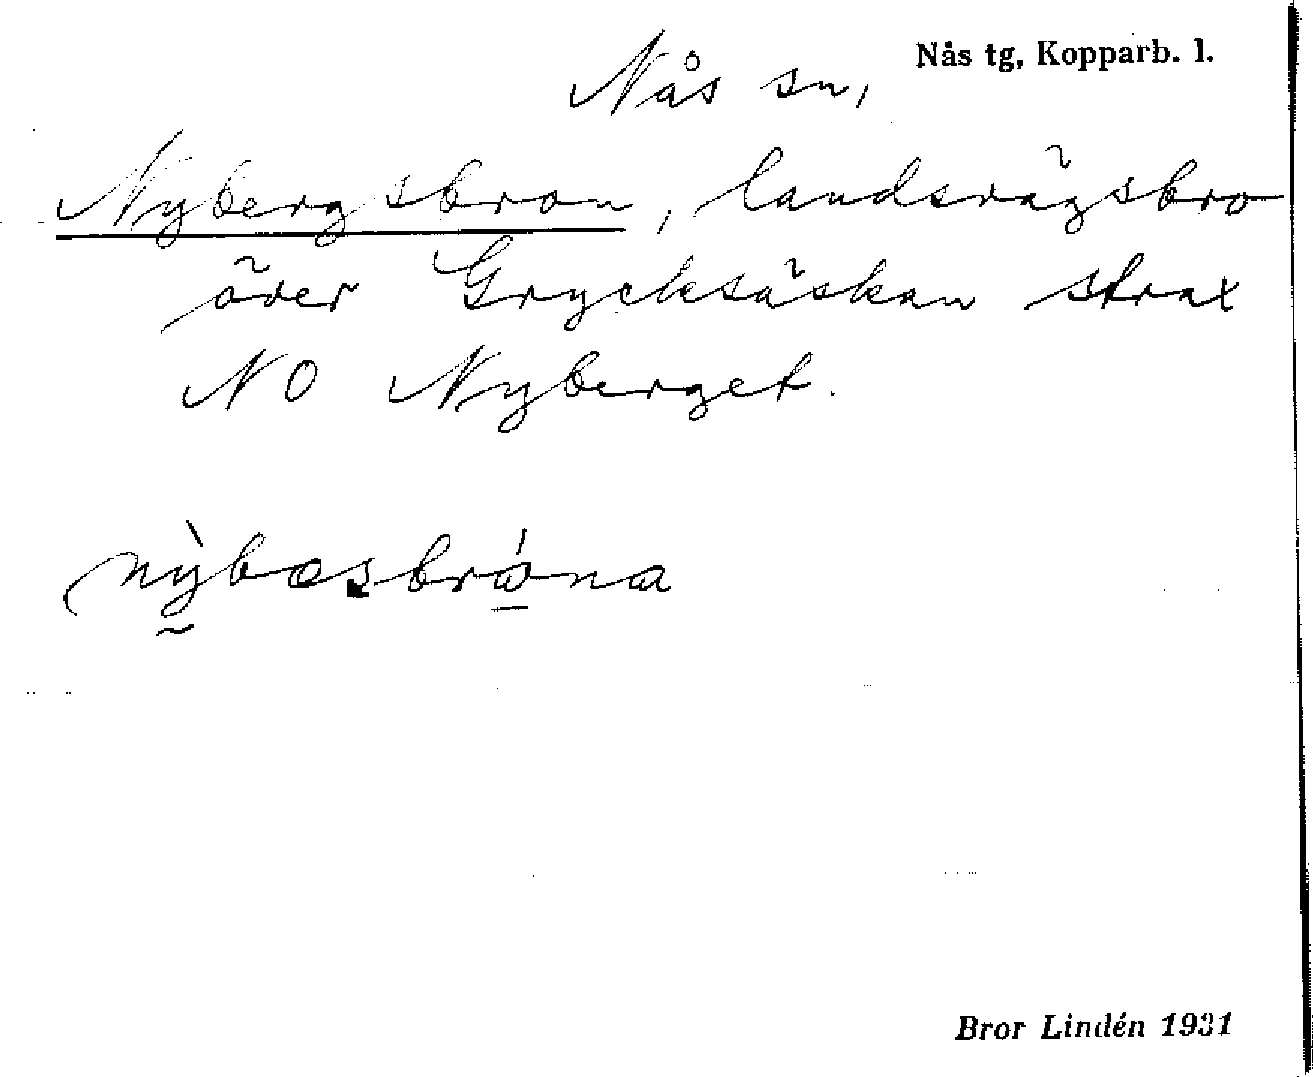 Nås tg, Kopparb. l.
Nås sn,
Nybergsbron, landsvägsbro
över Grycksåskan strax
NO Nyberget.
Bror Lindén 1931